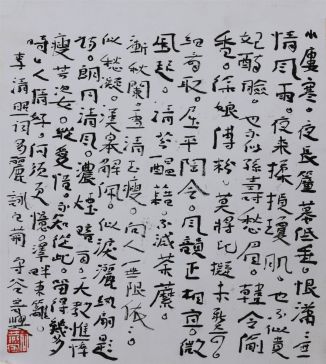 小廔寒。夜長簾幕低垂。恨瀟〻無
情風雨。夜來揉損瓊肌。也不似貴
妃醉臉。也不似孫壽愁眉。韓令偷
香。徐娘傅粉。莫將比擬未新奇。
細看取。屈平陶令。風韻正相宜。微
風起。清芬醞藉。不減荼蘼。
漸秋闌雪清玉瘦。向人無限依〻。
似愁凝。漢皋解佩。似淚灑紈扇題
詩。朗月清風。濃煙暗雨。天教憔悴
瘦芳姿。縱愛惜。不知從此。留得幾多
時。人情好。何須更憶。澤畔東籬。
李清照詞多麗 詠白菊